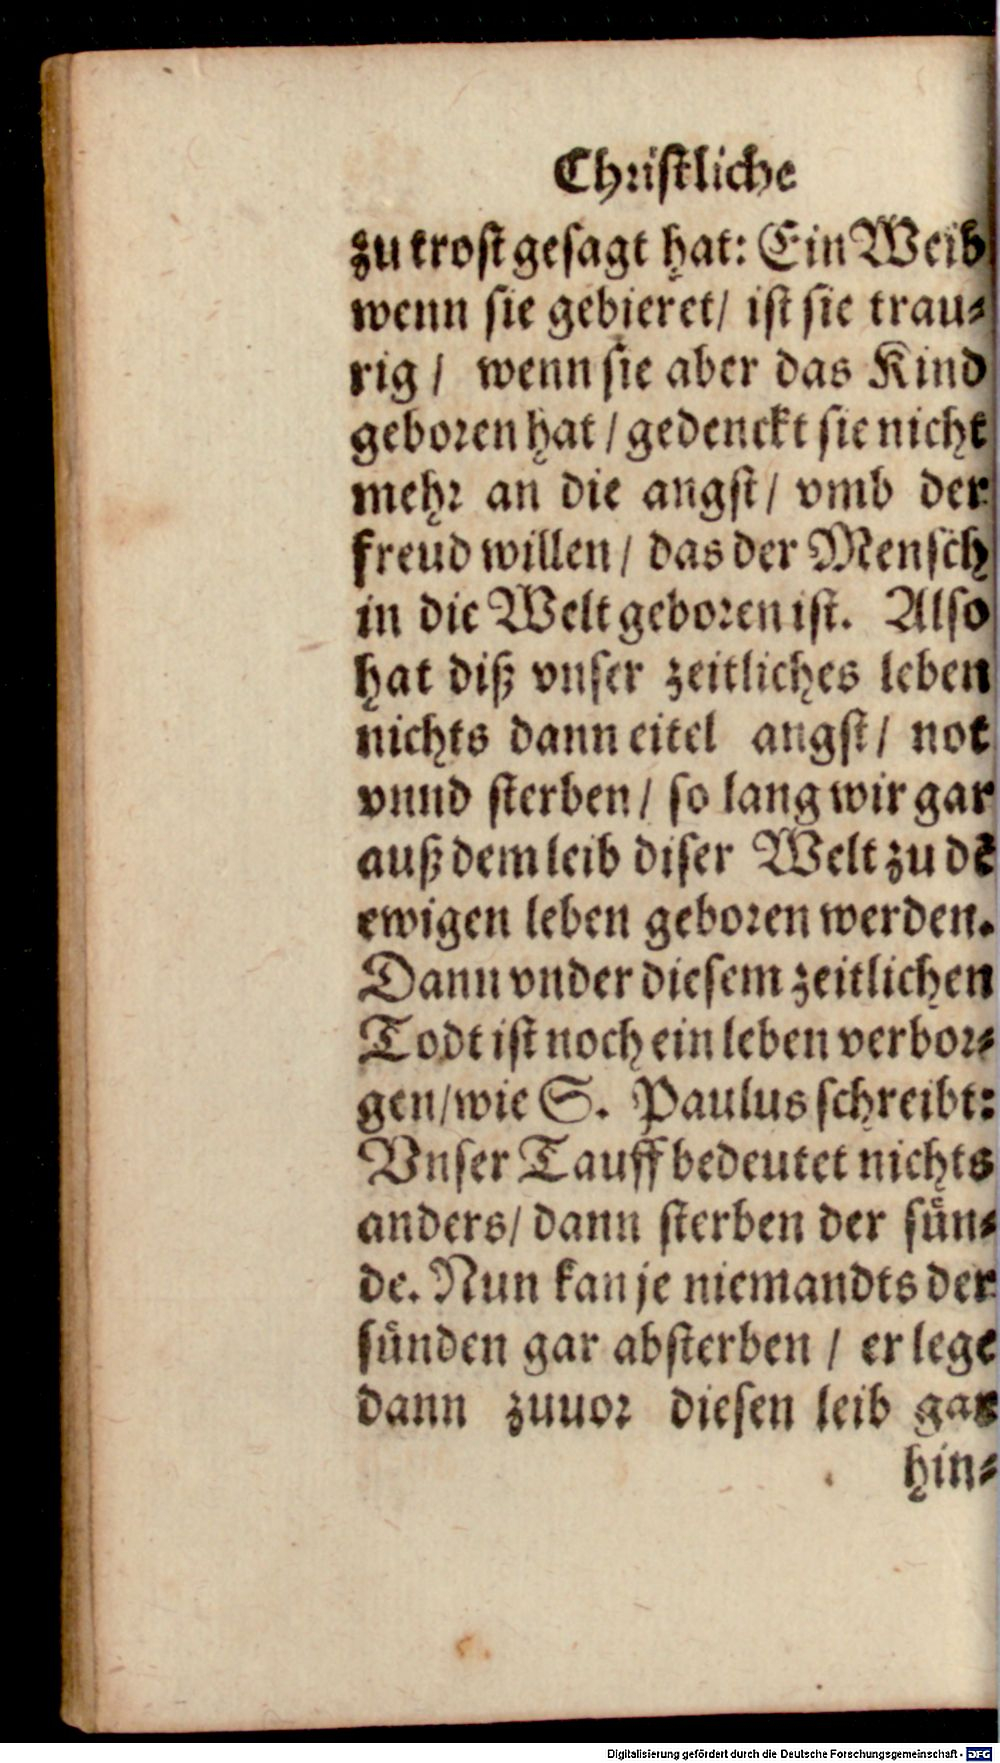 Christliche
zu trost gesagt hat: Ein Weib
wenn sie gebieret/ ist sie trau⸗
rig/ wenn sie aber das Kind
geboren hat/ gedenckt sie nicht
mehr an die angst/ vmb der
freud willen/ das der Mensch
in die Welt geboren ist. Also
hat diß vnser zeitliches leben
nichts dann eitel angst/ not
vnnd sterben/ so lang wir gar
auß dem leib diser Welt zu dẽ
ewigen leben geboren werden.
Dann vnder diesem zeitlichen
Todt ist noch ein leben verbor⸗
gen/ wie S. Paulus schreibt:
Vnser Tauff bedeutet nichts
anders/ dann sterben der sün⸗
de. Nun kan je niemandts der
sünden gar absterben/ er lege
dann zuuor diesen leib gar
hin⸗
Digitalisierung gefördert durch die Deutsche Forschungsgemeinschaft - DFG